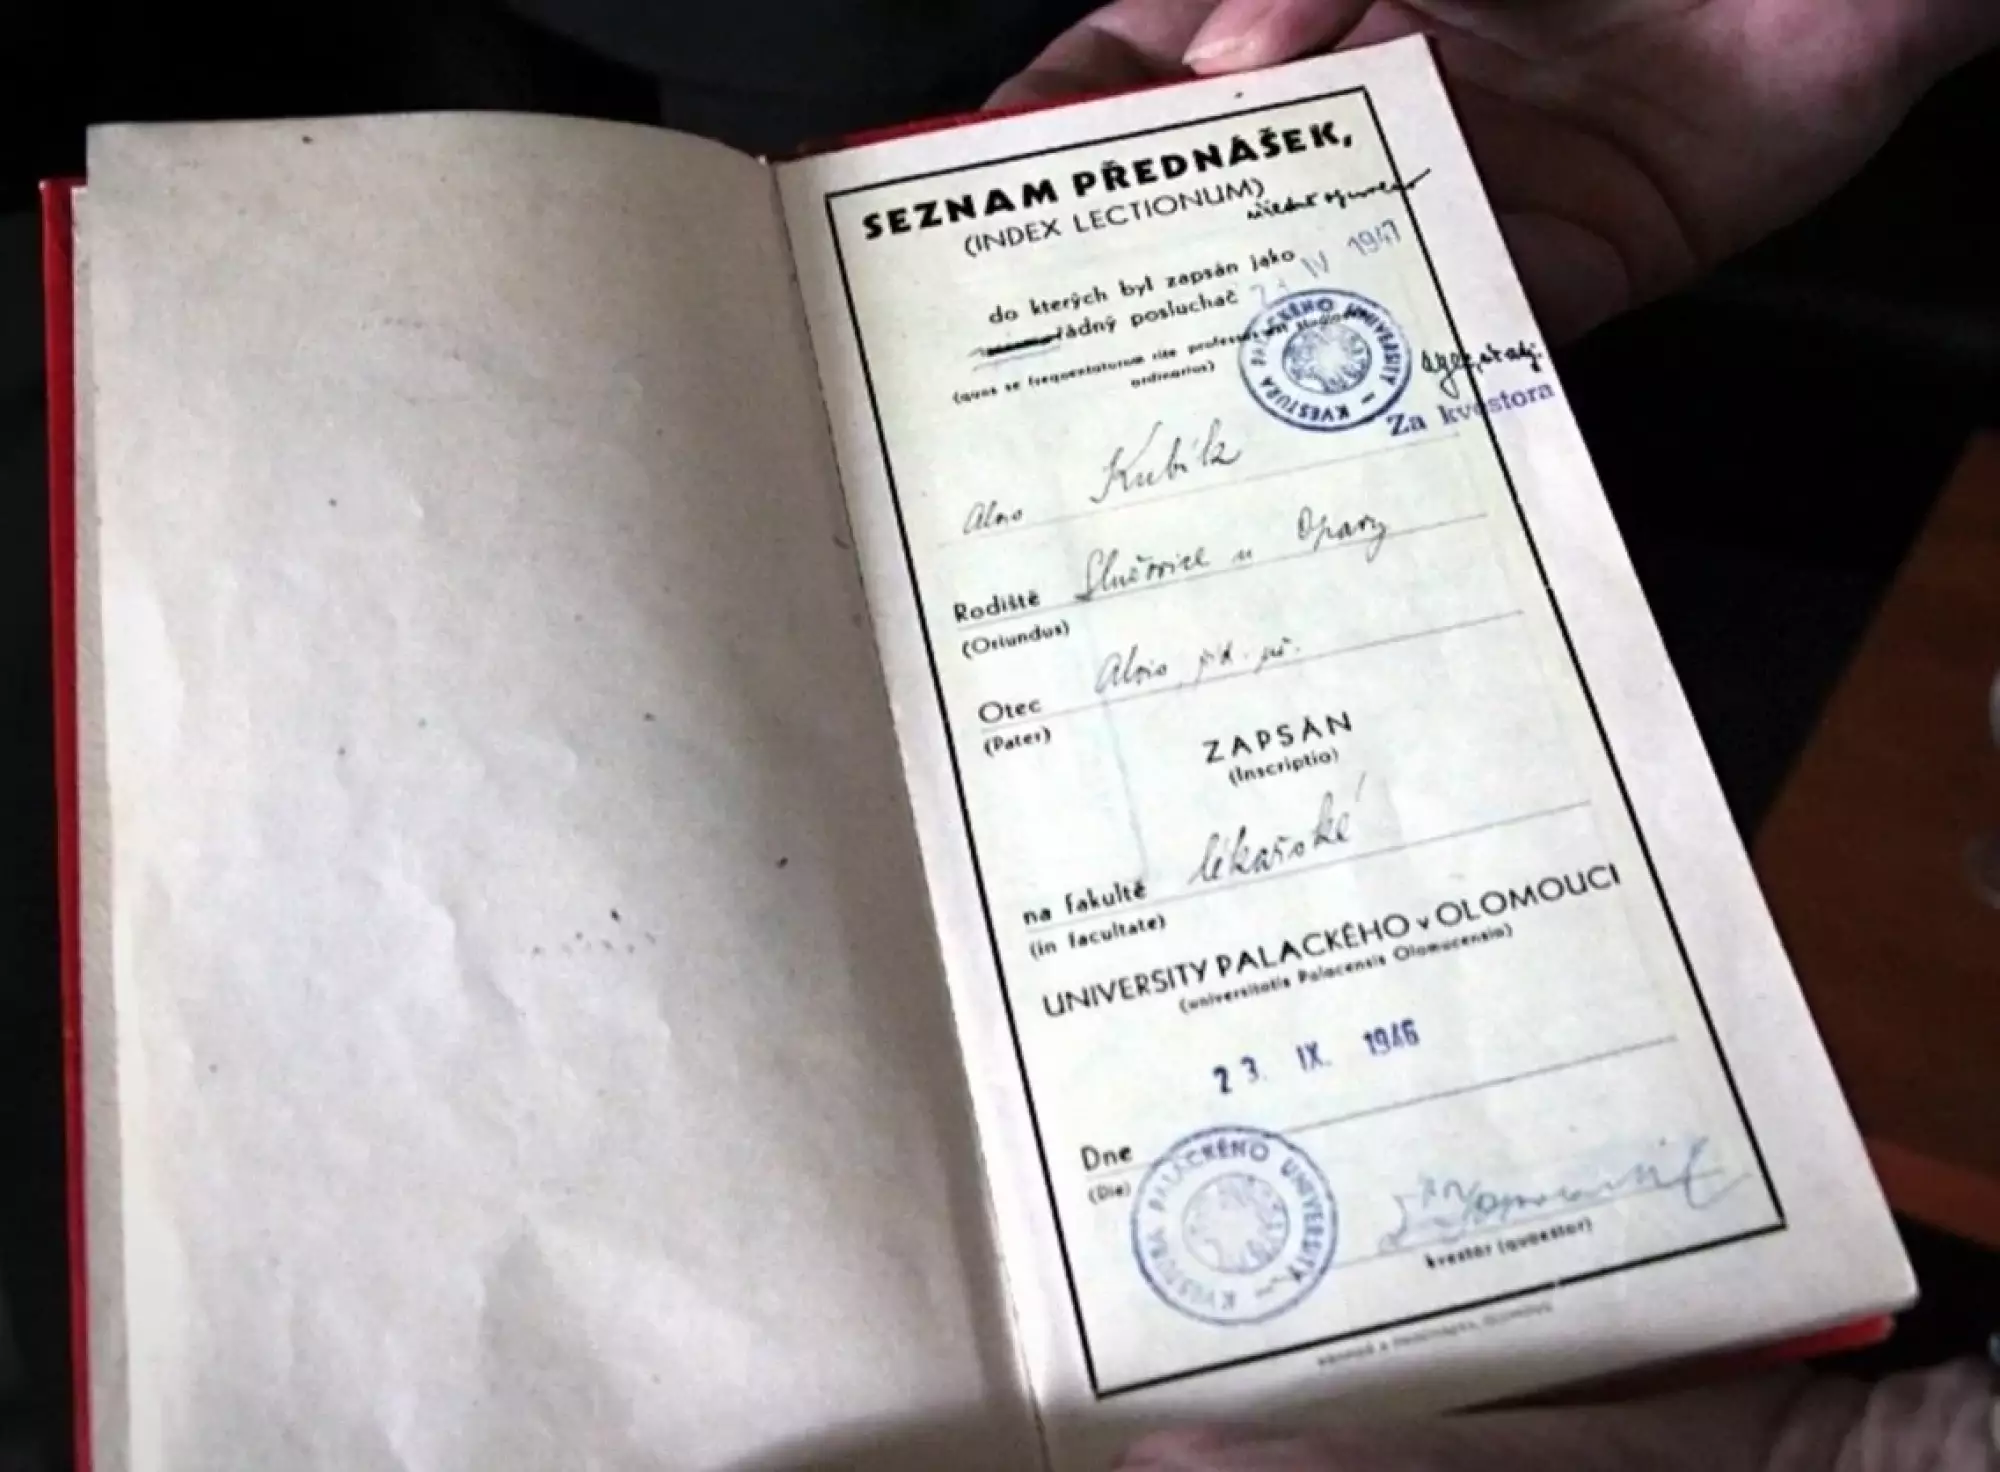 SEZNAM PŘEDNÁŠEK,
(INDEX LECTIONUM)
do kterých byl zapsán jako
řádný posluchač
IV 1947
(quos se frequentaturum rite professus est studiosus
ordinarius)
KVESTURA PALACKÉHO UNIVERSITY
Za kvestora
Alois Kubík
Rodiště Slučovice u Opavy
(Oriundus)
Otec Alois
(Pater)
ZAPSÁN
(Inscriptio)
na fakultě lékařské
(in facultate)
UNIVERSITY PALACKÉHO v OLOMOUCI
(universitatis Palacensis Olomucensis)
23. IX. 1946
Dne
(Die)
KVESTURA PALACKÉHO UNIVERSITY
kvestor (quaestor)